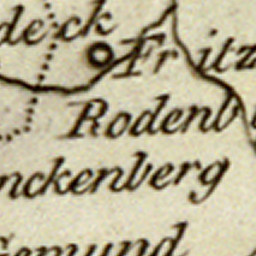 deck
Fritz
Rodenb
nckenberg
Gemund